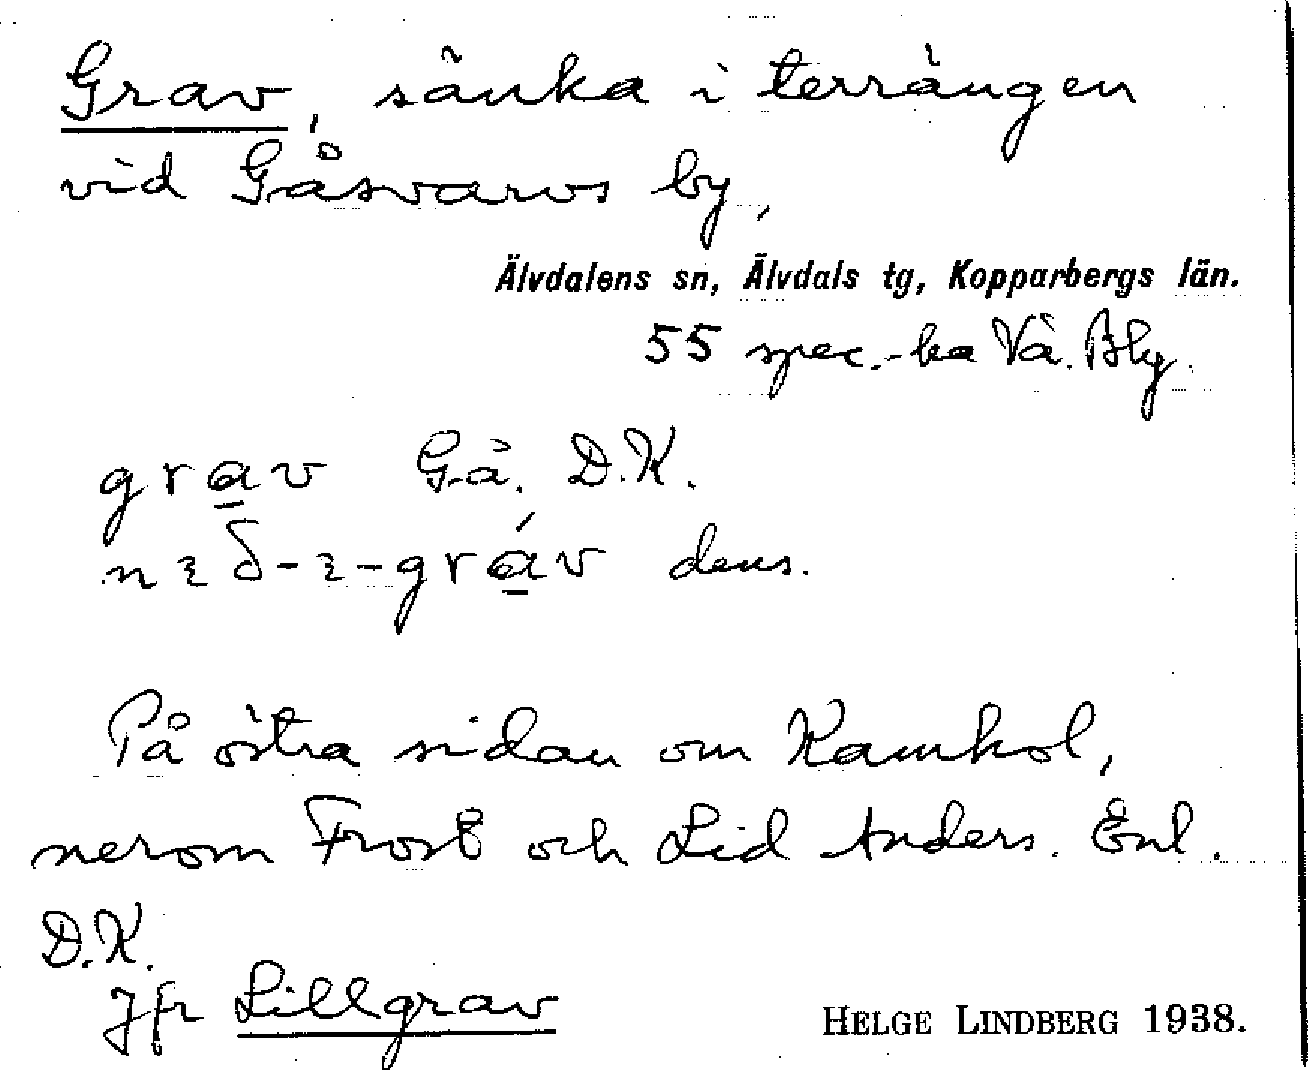 Grav, sänka i terrängen
vid Gåsvarvs by,
Älvdalens sn, Älvdals tg, Kopparbergs län.
55 spec.-ka Vå. Bly.
grav Gå. D.K.
dens.
På östra sidan om Kamhol,
nerom Frost och Lid Anders. Enl.
D.K.
Jfr Lillgrav
HELGE LINDBERG 1938.